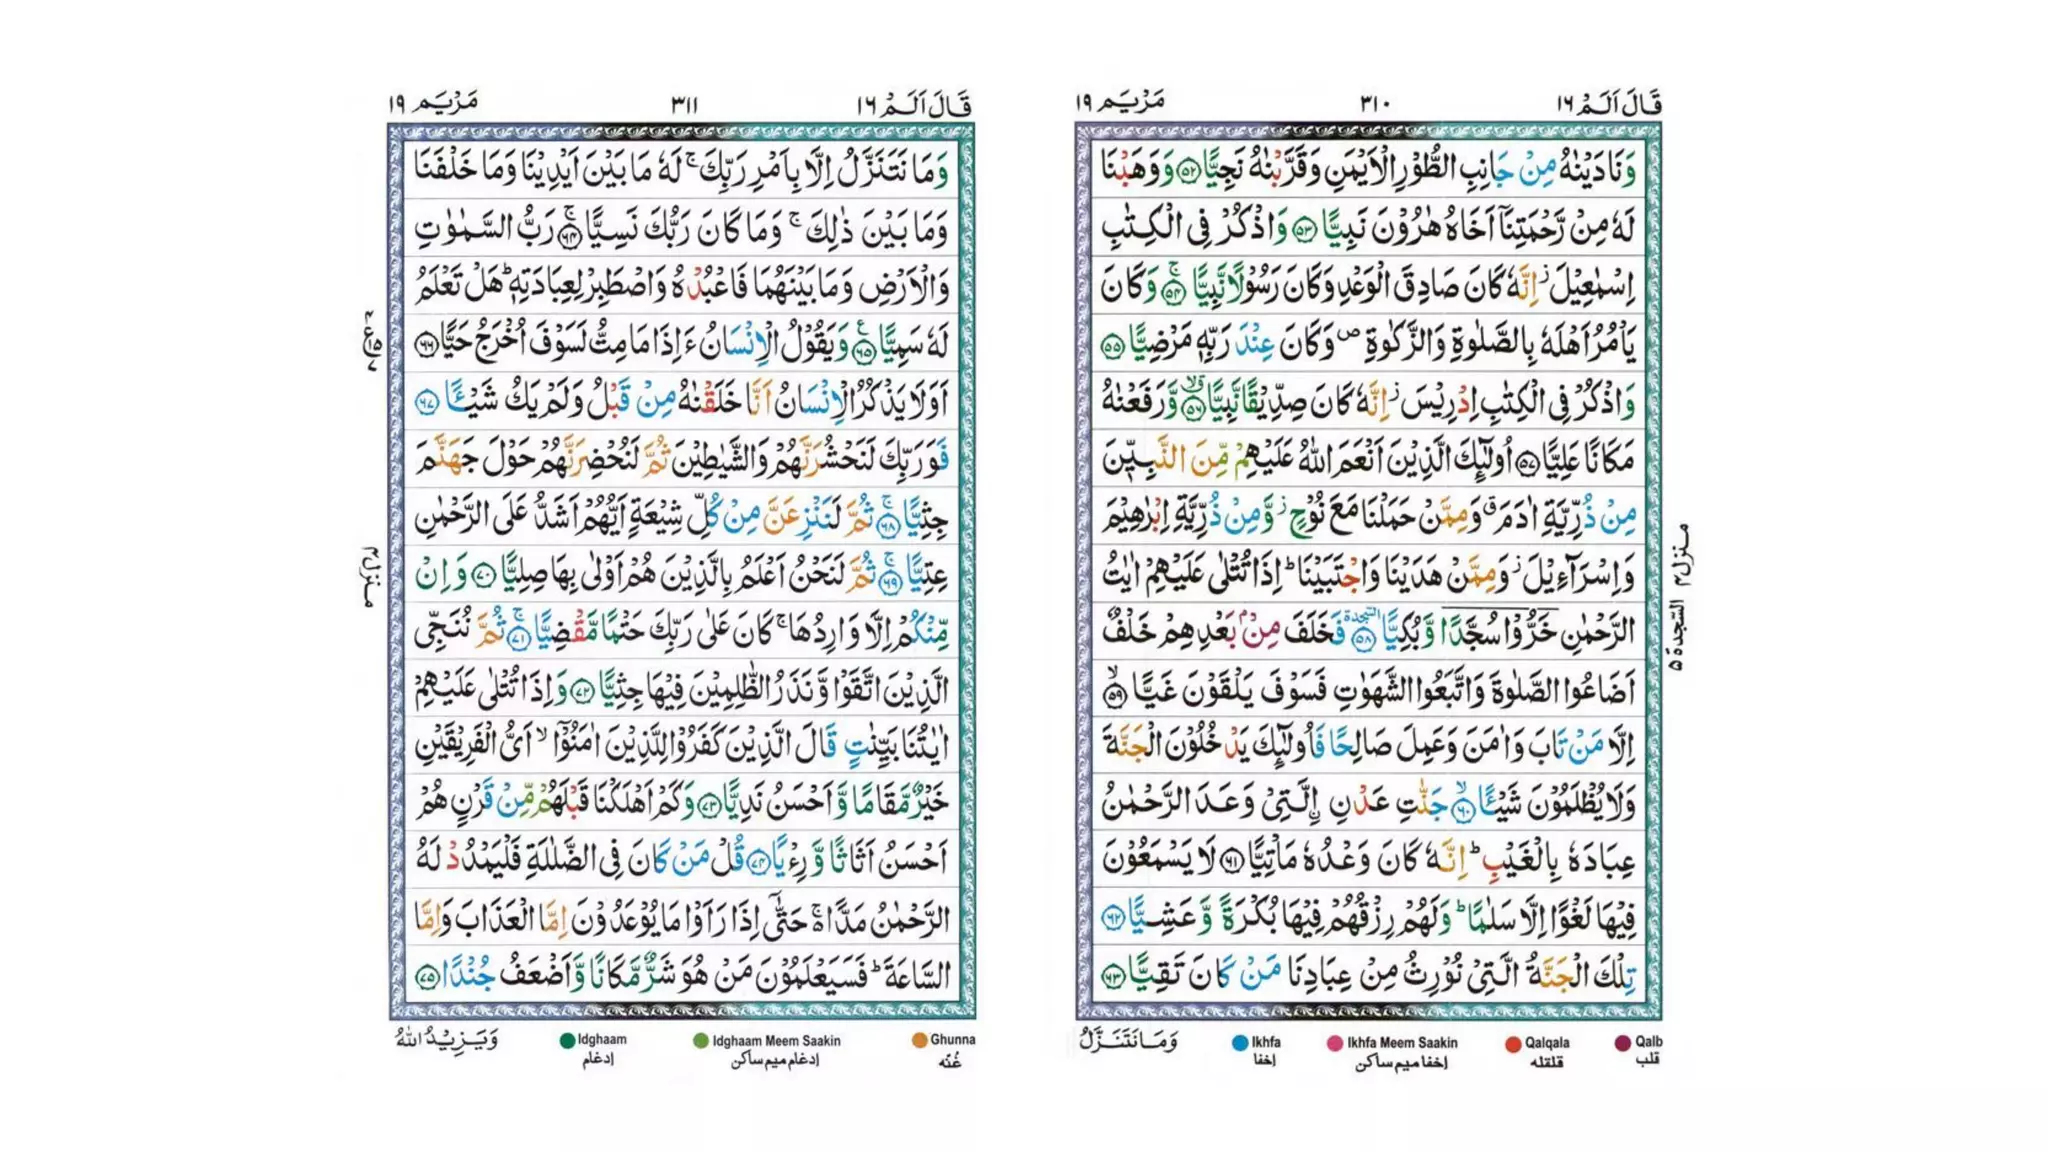 قَالَ اَلَمْ ١٦
٣١٠
مَرْيَم ١٩
وَنَادَيْنٰهُ مِنْ جَانِبِ الطُّوْرِ الْاَيْمَنِ وَقَرَّبْنٰهُ نَجِيًّا ﴿٥٢﴾ وَوَهَبْنَا
لَهٗ مِنْ رَّحْمَتِنَاۤ اَخَاهُ هٰرُوْنَ نَبِيًّا ﴿٥٣﴾ وَاذْكُرْ فِى الْكِتٰبِ
اِسْمٰعِيْلَ ز اِنَّهٗ كَانَ صَادِقَ الْوَعْدِ وَكَانَ رَسُوْلًا نَّبِيًّا ج ﴿٥٤﴾ وَكَانَ
يَاْمُرُ اَهْلَهٗ بِالصَّلٰوةِ وَالزَّكٰوةِ ص وَكَانَ عِنْدَ رَبِّهٖ مَرْضِيًّا ﴿٥٥﴾
وَاذْكُرْ فِى الْكِتٰبِ اِدْرِيْسَ ز اِنَّهٗ كَانَ صِدِّيْقًا نَّبِيًّا ق لا ﴿٥٦﴾ وَّرَفَعْنٰهُ
مَكَانًا عَلِيًّا ﴿٥٧﴾ اُولٰٓئِكَ الَّذِيْنَ اَنْعَمَ اللّٰهُ عَلَيْهِمْ مِّنَ النَّبِيّٖنَ
مِنْ ذُرِّيَّةِ اٰدَمَ ق وَمِمَّنْ حَمَلْنَا مَعَ نُوْحٍ ز وَّمِنْ ذُرِّيَّةِ اِبْرٰهِيْمَ
وَاِسْرَآءِيْلَ ز وَمِمَّنْ هَدَيْنَا وَاجْتَبَيْنَا ط اِذَا تُتْلٰى عَلَيْهِمْ اٰيٰتُ
الرَّحْمٰنِ خَرُّوْا سُجَّدًا وَّبُكِيًّا السجدة ﴿٥٨﴾ فَخَلَفَ مِنْۢ بَعْدِهِمْ خَلْفٌ
اَضَاعُوا الصَّلٰوةَ وَاتَّبَعُوا الشَّهَوٰتِ فَسَوْفَ يَلْقَوْنَ غَيًّا لا ﴿٥٩﴾
اِلَّا مَنْ تَابَ وَاٰمَنَ وَعَمِلَ صَالِحًا فَاُولٰٓئِكَ يَدْخُلُوْنَ الْجَنَّةَ
وَلَا يُظْلَمُوْنَ شَيْـًٔا لا ﴿٦٠﴾ جَنّٰتِ عَدْنِ اۨلَّتِيْ وَعَدَ الرَّحْمٰنُ
عِبَادَهٗ بِالْغَيْبِ ط اِنَّهٗ كَانَ وَعْدُهٗ مَاْتِيًّا ﴿٦١﴾ لَا يَسْمَعُوْنَ
فِيْهَا لَغْوًا اِلَّا سَلٰمًا ط وَلَهُمْ رِزْقُهُمْ فِيْهَا بُكْرَةً وَّعَشِيًّا ﴿٦٢﴾
تِلْكَ الْجَنَّةُ الَّتِيْ نُوْرِثُ مِنْ عِبَادِنَا مَنْ كَانَ تَقِيًّا ﴿٦٣﴾
منزل ٤ السجدة ٥
Qalb
قلب
Qalqala
قلقله
Ikhfa Meem Saakin
اخفا ميم ساكن
Ikhfa
اخفا
وَمَا نَتَنَزَّلُ
قَالَ اَلَمْ ١٦
٣١١
مَرْيَم ١٩
وَمَا نَتَنَزَّلُ اِلَّا بِاَمْرِ رَبِّكَ ج لَهٗ مَا بَيْنَ اَيْدِيْنَا وَمَا خَلْفَنَا
وَمَا بَيْنَ ذٰلِكَ ج وَمَا كَانَ رَبُّكَ نَسِيًّا ج ﴿٦٤﴾ رَبُّ السَّمٰوٰتِ
وَالْاَرْضِ وَمَا بَيْنَهُمَا فَاعْبُدْهُ وَاصْطَبِرْ لِعِبَادَتِهٖ ط هَلْ تَعْلَمُ
لَهٗ سَمِيًّا ع ﴿٦٥﴾ وَيَقُوْلُ الْاِنْسَانُ ءَاِذَا مَا مِتُّ لَسَوْفَ اُخْرَجُ حَيًّا ﴿٦٦﴾
اَوَلَا يَذْكُرُ الْاِنْسَانُ اَنَّا خَلَقْنٰهُ مِنْ قَبْلُ وَلَمْ يَكُ شَيْـًٔا ﴿٦٧﴾
فَوَرَبِّكَ لَنَحْشُرَنَّهُمْ وَالشَّيٰطِيْنَ ثُمَّ لَنُحْضِرَنَّهُمْ حَوْلَ جَهَنَّمَ
جِثِيًّا ج ﴿٦٨﴾ ثُمَّ لَنَنْزِعَنَّ مِنْ كُلِّ شِيْعَةٍ اَيُّهُمْ اَشَدُّ عَلَى الرَّحْمٰنِ
عِتِيًّا ج ﴿٦٩﴾ ثُمَّ لَنَحْنُ اَعْلَمُ بِالَّذِيْنَ هُمْ اَوْلٰى بِهَا صِلِيًّا ﴿٧٠﴾ وَاِنْ
مِّنْكُمْ اِلَّا وَارِدُهَا ج كَانَ عَلٰى رَبِّكَ حَتْمًا مَّقْضِيًّا ج ﴿٧١﴾ ثُمَّ نُنَجِّى
الَّذِيْنَ اتَّقَوْا وَّنَذَرُ الظّٰلِمِيْنَ فِيْهَا جِثِيًّا ﴿٧٢﴾ وَاِذَا تُتْلٰى عَلَيْهِمْ
اٰيٰتُنَا بَيِّنٰتٍ قَالَ الَّذِيْنَ كَفَرُوْا لِلَّذِيْنَ اٰمَنُوْۤا لا اَىُّ الْفَرِيْقَيْنِ
خَيْرٌ مَّقَامًا وَّاَحْسَنُ نَدِيًّا ﴿٧٣﴾ وَكَمْ اَهْلَكْنَا قَبْلَهُمْ مِّنْ قَرْنٍ هُمْ
اَحْسَنُ اَثَاثًا وَّرِءْيًا ﴿٧٤﴾ قُلْ مَنْ كَانَ فِى الضَّلٰلَةِ فَلْيَمْدُدْ لَهُ
الرَّحْمٰنُ مَدًّا ج حَتّٰٓى اِذَا رَاَوْا مَا يُوْعَدُوْنَ اِمَّا الْعَذَابَ وَاِمَّا
السَّاعَةَ ط فَسَيَعْلَمُوْنَ مَنْ هُوَ شَرٌّ مَّكَانًا وَّاَضْعَفُ جُنْدًا ﴿٧٥﴾
منزل ٤
Ghunna
غُنّه
Idghaam Meem Saakin
ادغام ميم ساكن
Idghaam
ادغام
وَيَزِيْدُ اللّٰهُ